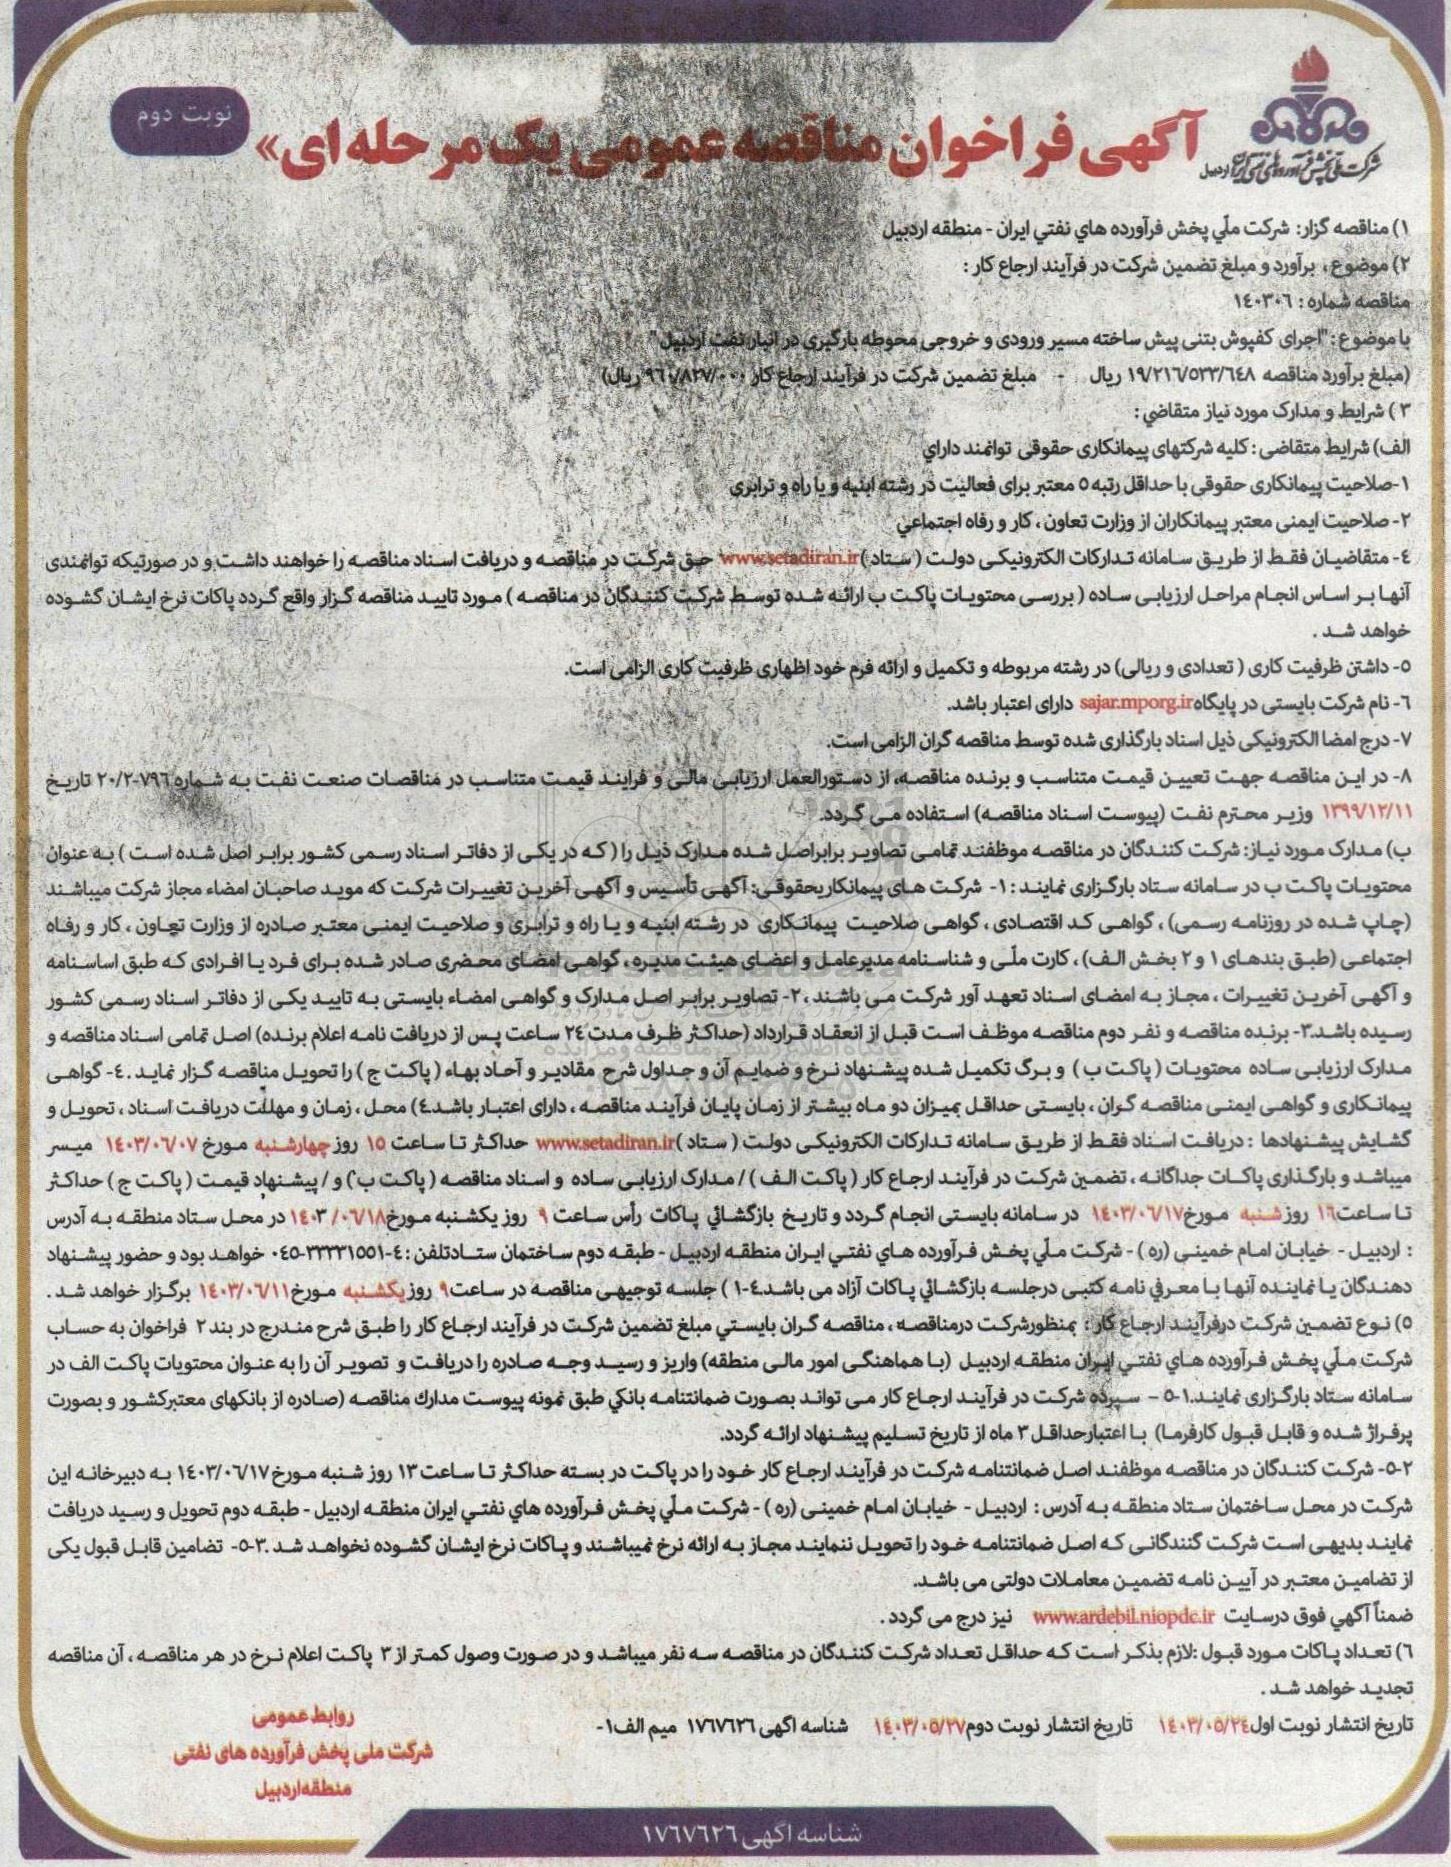 آگهی فراخوان مناقصه عمومی یک مرحله‌ای»
نوبت دوم
شرکت ملی پخش فرآورده‌های نفتی ایران اردبیل
۱) مناقصه گزار: شرکت ملّي پخش فرآورده هاي نفتي ايران - منطقه اردبيل
۲) موضوع ، برآورد و مبلغ تضمین شرکت در فرآیند ارجاع کار :
مناقصه شماره : ۱۴۰۳۰۶
با موضوع : "اجرای کفپوش بتنی پیش ساخته مسیر ورودی و خروجی محوطه بارگیری در انبار نفت اردبیل"
(مبلغ برآورد مناقصه ۱۹/۲۱۶/۵۳۳/۶۴۸ ریال - مبلغ تضمین شرکت در فرآیند ارجاع کار ۹۶۰/۸۲۷/۰۰۰ ریال)
۳ ) شرایط و مدارک مورد نیاز متقاضي :
الف) شرایط متقاضی : کلیه شرکتهای پیمانکاری حقوقی توانمند داراي
۱-صلاحیت پیمانکاری حقوقی با حداقل رتبه ۵ معتبر برای فعالیت در رشته ابنیه و یا راه و ترابری
۲- صلاحیت ایمنی معتبر پیمانکاران از وزارت تعاون ، کار و رفاه اجتماعي
۴- متقاضیان فقط از طریق سامانه تدارکات الکترونیکی دولت ( ستاد )www.setadiran.ir حق شرکت در مناقصه و دریافت اسناد مناقصه را خواهند داشت و در صورتیکه توانمندی
آنها بر اساس انجام مراحل ارزیابی ساده ( بررسی محتویات پاکت ب ارائه شده توسط شرکت کنندگان در مناقصه ) مورد تایید مناقصه گزار واقع گردد پاکات نرخ ایشان گشوده
خواهد شد .
۵- داشتن ظرفیت کاری ( تعدادی و ریالی) در رشته مربوطه و تکمیل و ارائه فرم خود اظهاری ظرفیت کاری الزامی است.
۶- نام شرکت بایستی در پایگاه sajar.mporg.ir دارای اعتبار باشد.
۷- درج امضا الکترونیکی ذیل اسناد بارگذاری شده توسط مناقصه گران الزامی است.
۸- در این مناقصه جهت تعیین قیمت متناسب و برنده مناقصه، از دستورالعمل ارزیابی مالی و فرایند قیمت متناسب در مناقصات صنعت نفت به شماره ۷۹۶-۲۰/۲ تاریخ
۱۳۹۹/۱۲/۱۱ وزیر محترم نفت (پیوست اسناد مناقصه) استفاده می گردد.
ب) مدارک مورد نیاز: شرکت کنندگان در مناقصه موظفند تمامی تصاویر برابراصل شده مدارک ذیل را ( که در یکی از دفاتر اسناد رسمی کشور برابر اصل شده است ) به عنوان
محتویات پاکت ب در سامانه ستاد بارگزاری نمایند : ۱- شرکت های پیمانکاریحقوقی: آگهی تأسیس و آگهی آخرین تغییرات شرکت که موید صاحبان امضاء مجاز شرکت میباشند
(چاپ شده در روزنامه رسمی) ، گواهی کد اقتصادی ، گواهی صلاحیت پیمانکاری در رشته ابنیه و یا راه و ترابری و صلاحیت ایمنی معتبر صادره از وزارت تعاون ، کار و رفاه
اجتماعی (طبق بندهای ۱ و ۲ بخش الف) ، کارت ملّی و شناسنامه مدیرعامل و اعضای هیئت مدیره ، گواهی امضای محضری صادر شده برای فرد یا افرادی که طبق اساسنامه
و آگهی آخرین تغییرات ، مجاز به امضای اسناد تعهد آور شرکت می باشند ، ۲- تصاویر برابر اصل مدارک و گواهی امضاء بایستی به تایید یکی از دفاتر اسناد رسمی کشور
رسیده باشد.۳- برنده مناقصه و نفر دوم مناقصه موظف است قبل از انعقاد قرارداد (حداکثر ظرف مدت ۲۴ ساعت پس از دریافت نامه اعلام برنده) اصل تمامی اسناد مناقصه و
مدارک ارزیابی ساده محتویات ( پاکت ب ) و برگ تکمیل شده پیشنهاد نرخ و ضمایم آن و جداول شرح مقادیر و آحاد بهاء ( پاکت ج ) را تحویل مناقصه گزار نماید . ۴- گواهی
پیمانکاری و گواهی ایمنی مناقصه گران ، بایستی حداقل بمیزان دو ماه بیشتر از زمان پایان فرآیند مناقصه ، دارای اعتبار باشد.۴) محل ، زمان و مهلت دریافت اسناد ، تحویل و
گشایش پیشنهادها : دریافت اسناد فقط از طریق سامانه تدارکات الکترونیکی دولت ( ستاد )www.setadiran.ir حداکثر تا ساعت ۱۵ روز چهارشنبه مورخ ۱۴۰۳/۰۶/۰۷ میسر
میباشد و بارگذاری پاکات جداگانه ، تضمین شرکت در فرآیند ارجاع کار ( پاکت الف ) / مدارک ارزیابی ساده و اسناد مناقصه ( پاکت ب ) و / پیشنهاد قیمت ( پاکت ج ) حداکثر
تا ساعت۱۶ روز شنبه مورخ ۱۴۰۳/۰۶/۱۷ در سامانه بایستی انجام گردد و تاریخ بازگشائي پاکات رأس ساعت ۹ روز یکشنبه مورخ ۱۴۰۳/۰۶/۱۸ در محل ستاد منطقه به آدرس
: اردبیل - خیابان امام خمینی (ره) - شرکت ملّي پخش فرآورده هاي نفتي ايران منطقه اردبیل - طبقه دوم ساختمان ستادتلفن : ۴-۳۳۳۳۱۵۵۱-۰۴۵ خواهد بود و حضور پیشنهاد
دهندگان یا نماینده آنها با معرفي نامه کتبی درجلسه بازگشائي پاکات آزاد می باشد.۴-۱ ) جلسه توجیهی مناقصه در ساعت ۹ روز یکشنبه مورخ ۱۴۰۳/۰۶/۱۱ برگزار خواهد شد .
۵) نوع تضمین شرکت درفرآیند ارجاع کار : بمنظورشرکت درمناقصه ، مناقصه گران بایستي مبلغ تضمین شرکت در فرآیند ارجاع کار را طبق شرح مندرج در بند ۲ فراخوان به حساب
شرکت ملّي پخش فرآورده هاي نفتي ايران منطقه اردبیل (با هماهنگی امور مالی منطقه) واریز و رسید وجه صادره را دریافت و تصویر آن را به عنوان محتویات پاکت الف در
سامانه ستاد بارگزاری نمایند.۵-۱ – سپرده شرکت در فرآیند ارجاع کار می تواند بصورت ضمانتنامه بانکي طبق نمونه پیوست مدارك مناقصه (صادره از بانکهای معتبرکشور و بصورت
پرفراژ شده و قابل قبول کارفرما) با اعتبارحداقل ۳ ماه از تاریخ تسلیم پیشنهاد ارائه گردد.
۵-۲- شرکت کنندگان در مناقصه موظفند اصل ضمانتنامه شرکت در فرآیند ارجاع کار خود را در پاکت در بسته حداکثر تا ساعت ۱۳ روز شنبه مورخ ۱۴۰۳/۰۶/۱۷ به دبیرخانه این
شرکت در محل ساختمان ستاد منطقه به آدرس : اردبیل - خیابان امام خمینی (ره) - شرکت ملّي پخش فرآورده هاي نفتي ایران منطقه اردبیل - طبقه دوم تحویل و رسید دریافت
نمایند بدیهی است شرکت گنندگانی که اصل ضمانتنامه خود را تحویل ننمایند مجاز به ارائه نرخ نمیباشند و پاکات نرخ ایشان گشوده نخواهد شد .۵-۳- تضامین قابل قبول یکی
از تضامین معتبر در آیین نامه تضمین معاملات دولتی می باشد.
ضمناً آگهي فوق درسایت www.ardebil.niopdc.ir نیز درج می گردد .
۶) تعداد پاکات مورد قبول :لازم بذکر است که حداقل تعداد شرکت کنندگان در مناقصه سه نفر میباشد و در صورت وصول کمتر از ۳ پاکت اعلام نرخ در هر مناقصه ، آن مناقصه
تجدید خواهد شد .
تاریخ انتشار نوبت اول۱۴۰۳/۰۵/۲۴ تاریخ انتشار نوبت دوم۱۴۰۳/۰۵/۲۷ شناسه اگهی ۱۷۶۷۶۲۶ میم الف۱-
روابط عمومی
شرکت ملی پخش فرآورده های نفتی
منطقه اردبیل
شناسه اگهی ۱۷۶۷۶۲۶